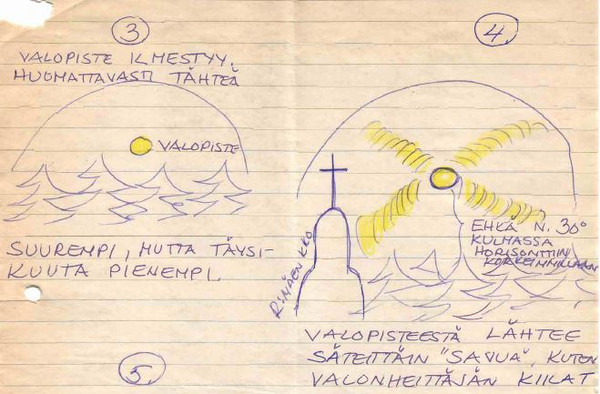 3
VALOPISTE ILMESTYY,
HUOMATTAVASTI TÄHTEÄ
VALOPISTE
SUUREMPI, MUTTA TÄYSI-
KUUTA PIENEMPI.
4
R:MÄEN KKO
EHKÄ N. 30°
KULMASSA
HORISONTTIIN
KORKEIMMILLAAN
VALOPISTEESTÄ LÄHTEE
SÄTEITTÄIN "SAVUA", KUTEN
VALONHEITTÄJÄN KIILAT
5.